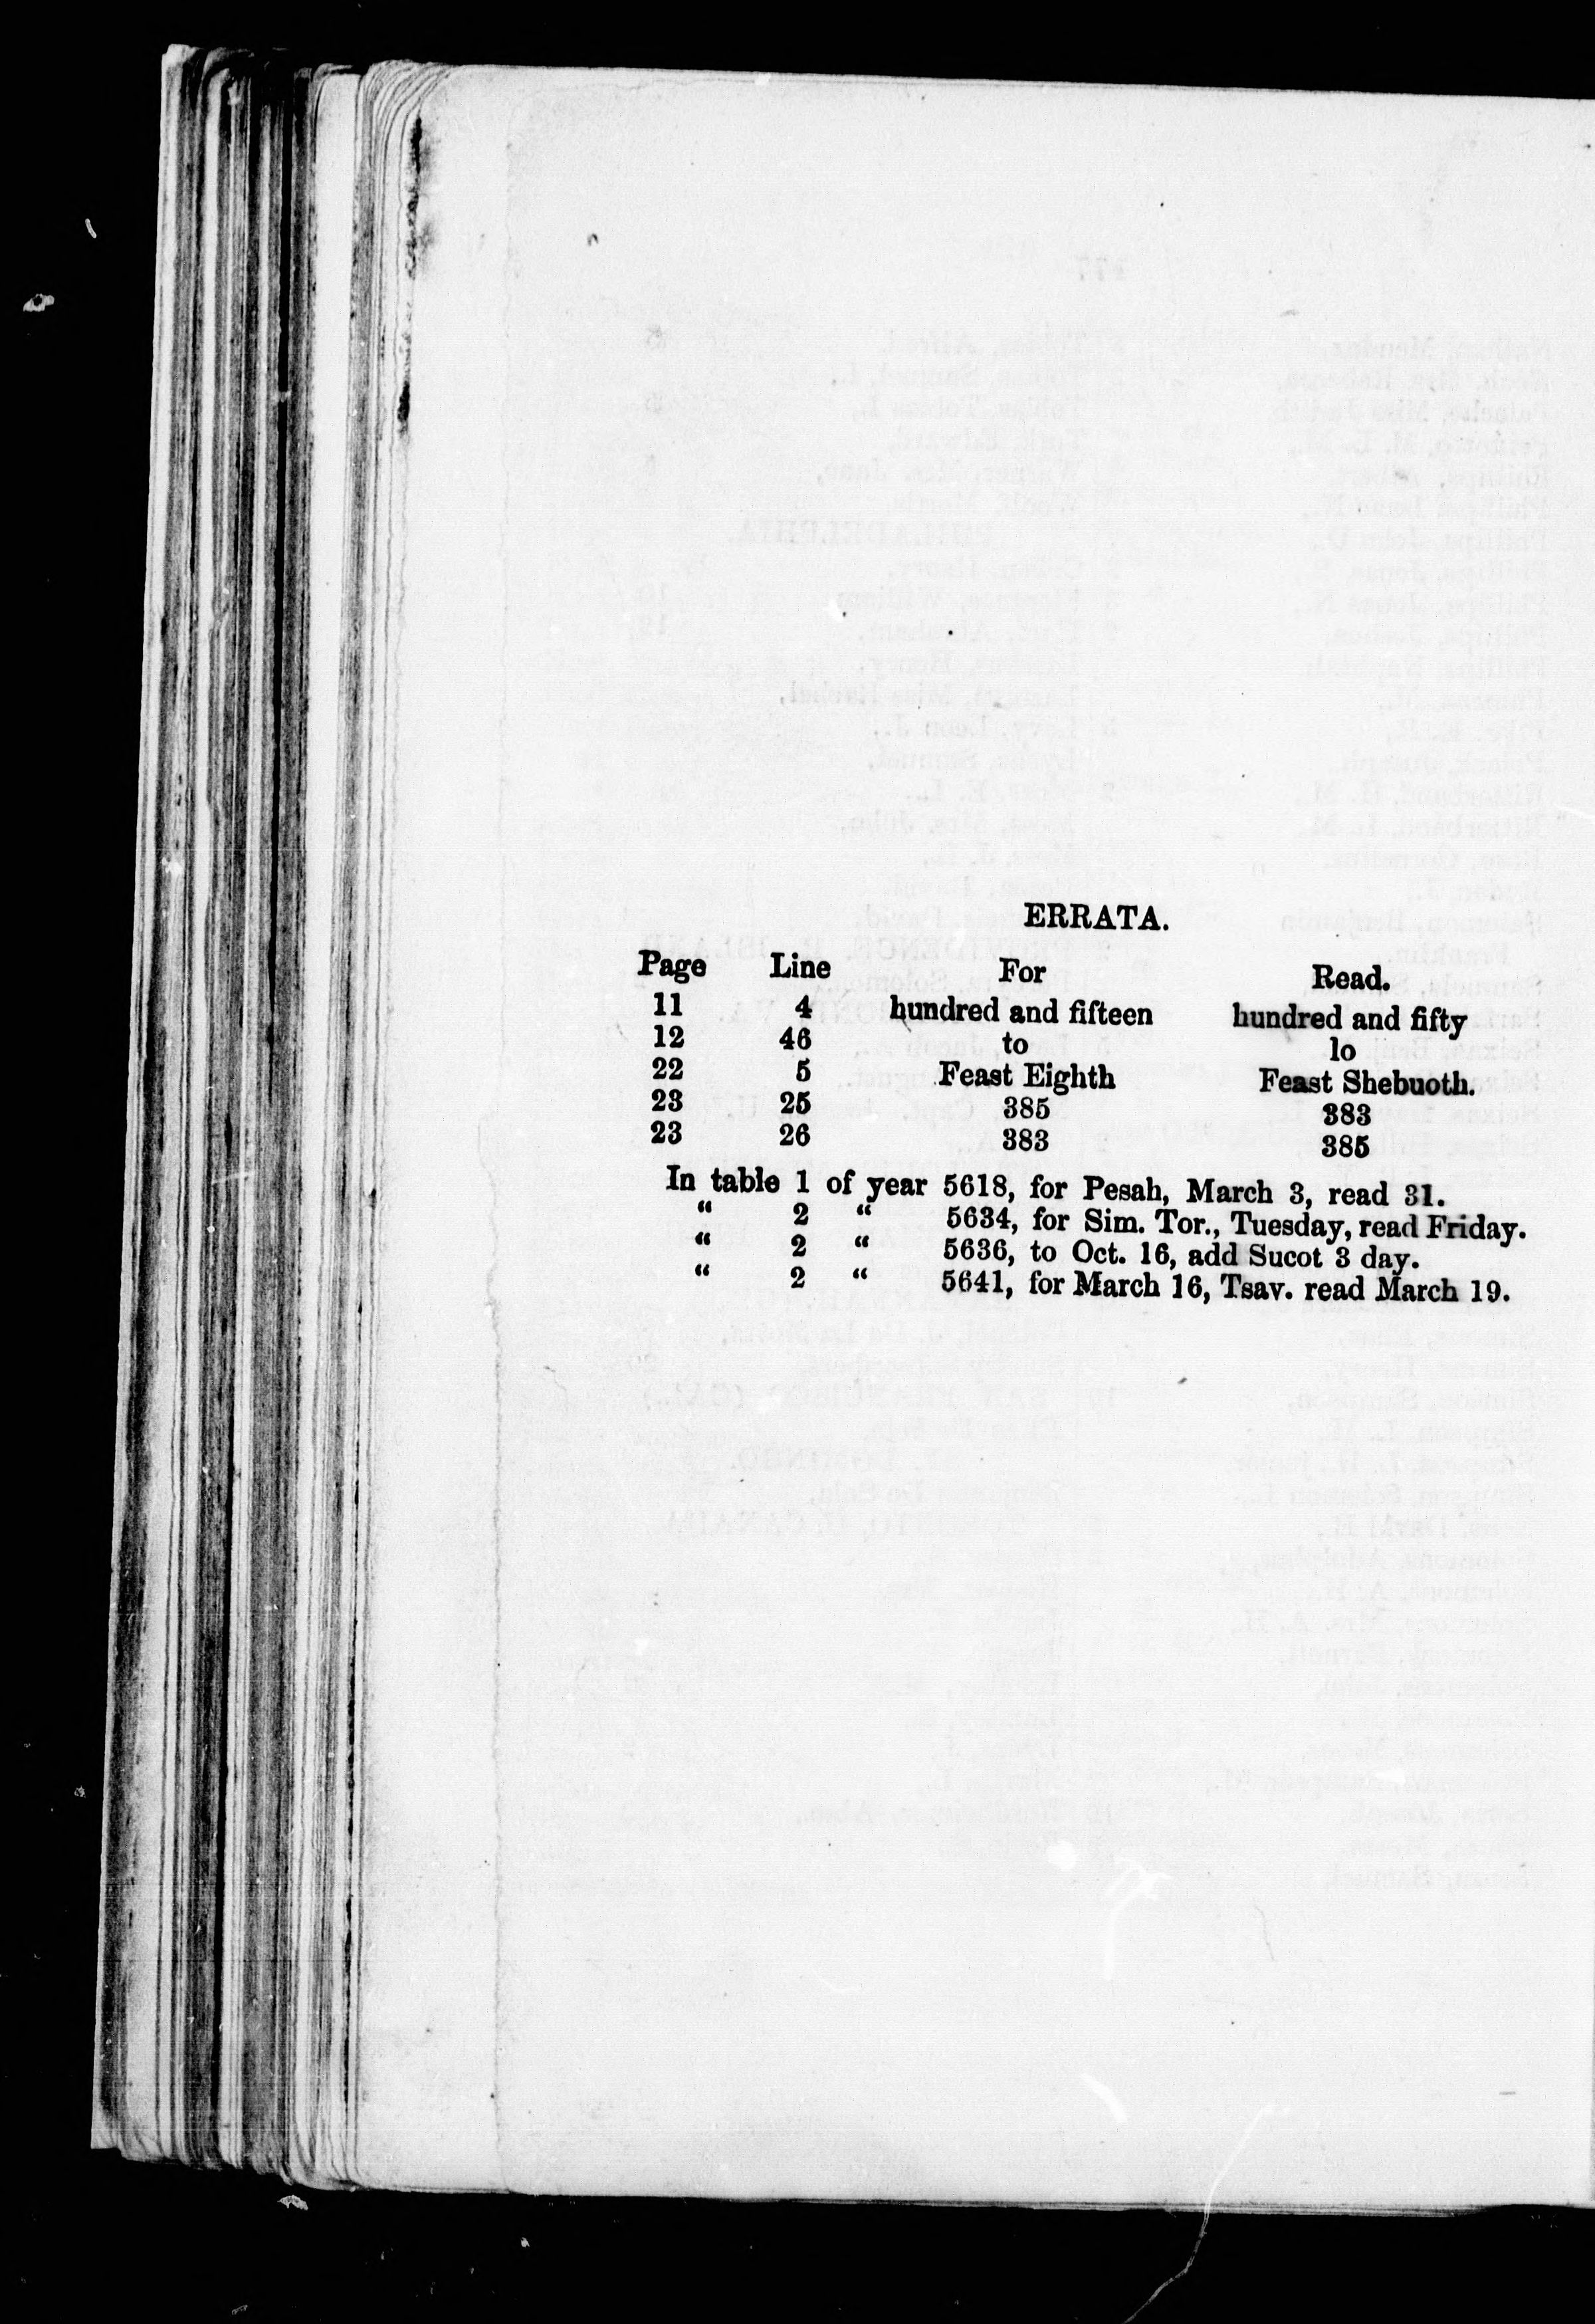 ERRATA.
Page Line For Read.
11 4 hundred and fifteen hundred and fifty
12 46 to lo
22 5 Feast Eighth Feast Shebuoth.
23 25 385 383
23 26 383 385
In table 1 of year 5618, for Pesah, March 3, read 31.
“ 2 “ 5634, for Sim. Tor., Tuesday, read Friday.
“ 2 “ 5636, to Oct. 16, add Sucot 3 day.
“ 2 “ 5641, for March 16, Tsav. read March 19.